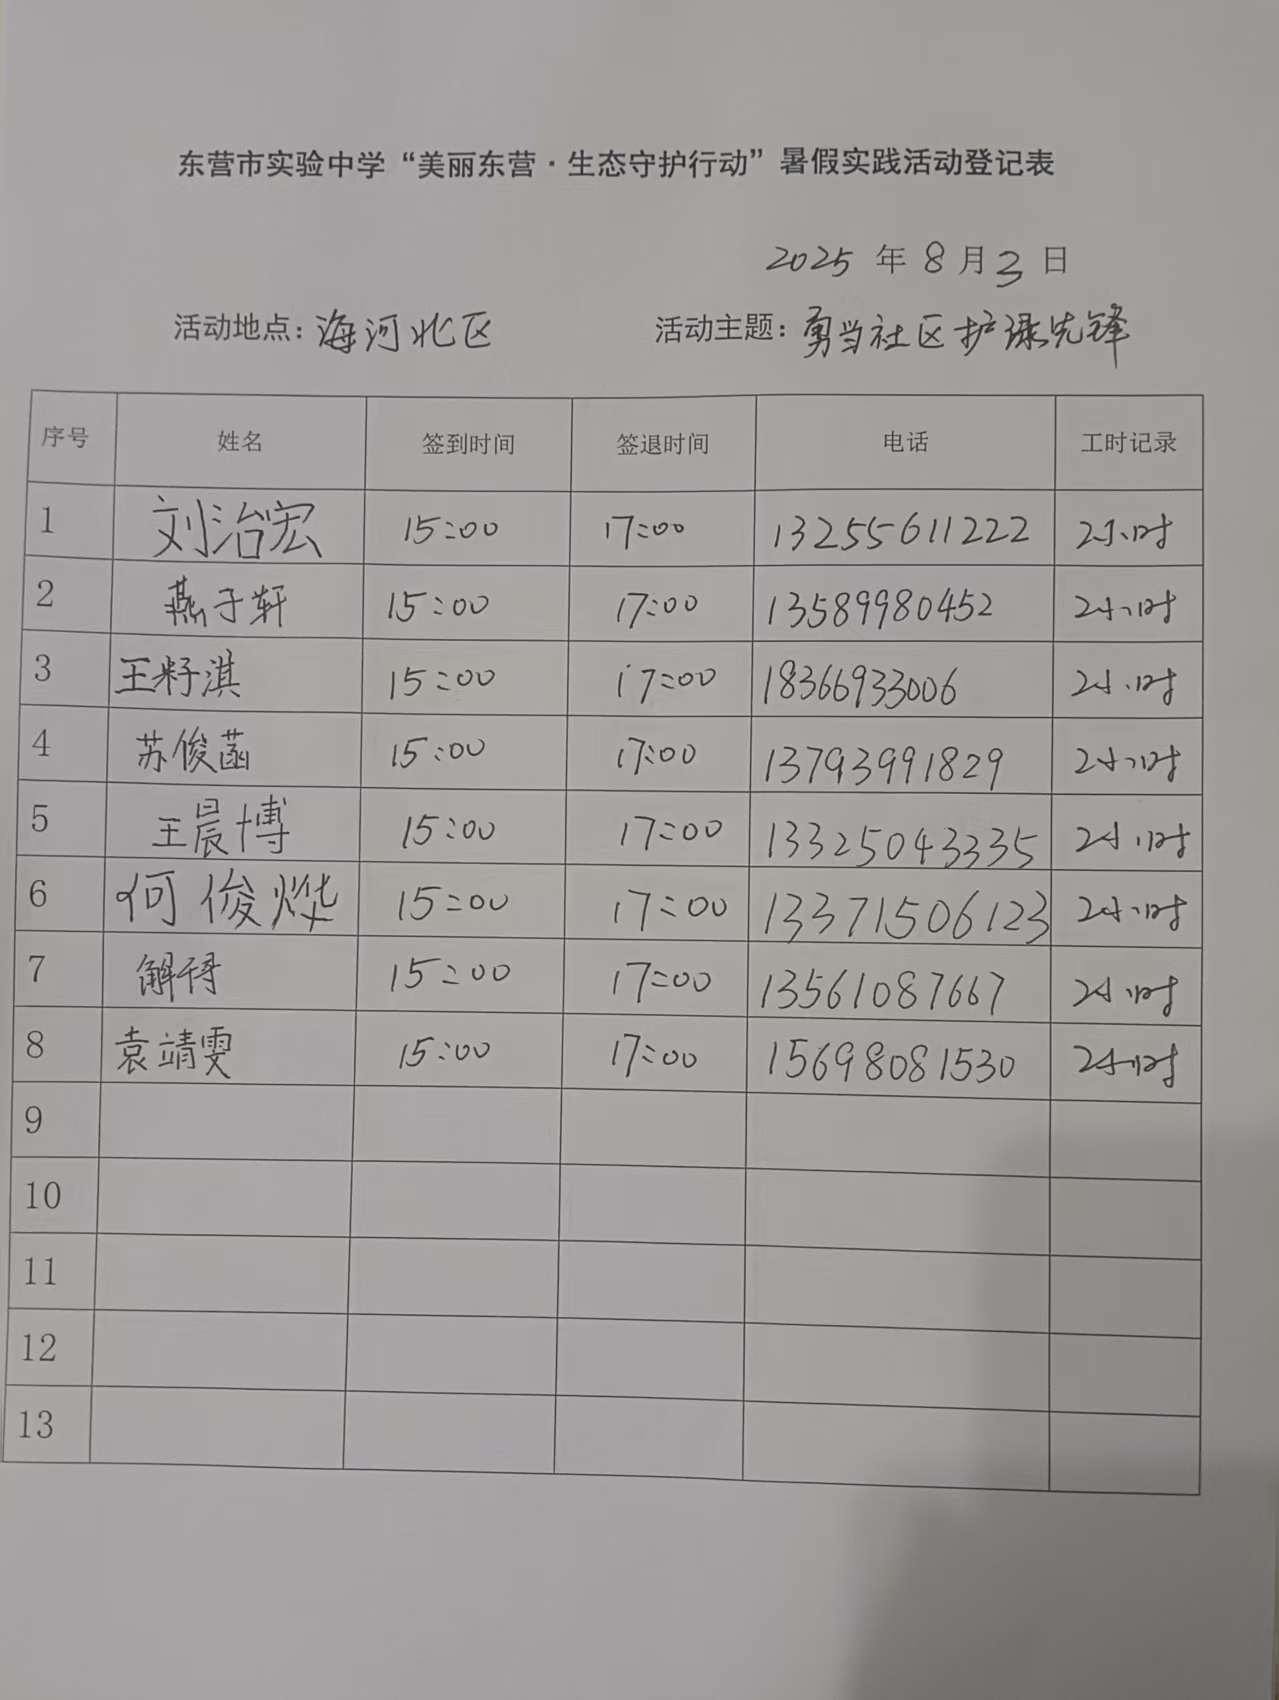 东营市实验中学“美丽东营·生态守护行动”暑假实践活动登记表
2025 年 8 月 3 日
活动地点：海河北区 活动主题：勇当社区护绿先锋
序号 姓名 签到时间 签退时间 电话 工时记录
1 刘治宏 15:00 17:00 13255611222 2小时
2 燕子轩 15:00 17:00 13589980452 2小时
3 王籽淇 15:00 17:00 18366933006 2小时
4 苏俊菡 15:00 17:00 13793991829 2小时
5 王晨博 15:00 17:00 13325043335 2小时
6 何俊烨 15:00 17:00 13371506123 2小时
7 解 15:00 17:00 13561087667 2小时
8 袁靖雯 15:00 17:00 15698081530 2小时
9
10
11
12
13